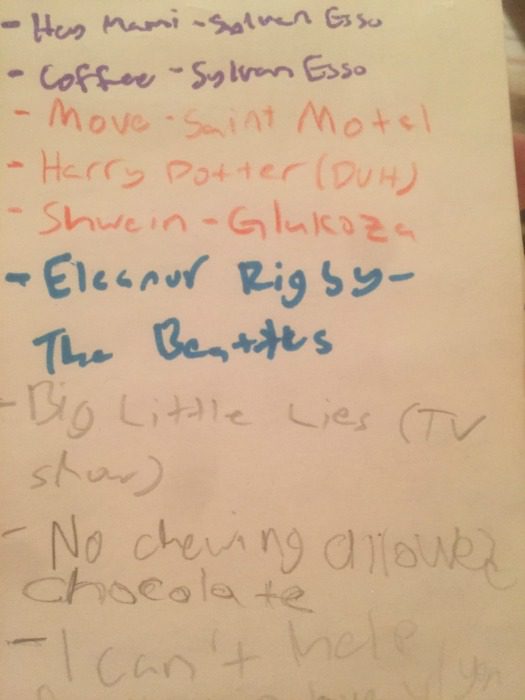 - Hey Mami - Sylvan Esso
- Coffee - Sylvan Esso
- Move - Saint Motel
- Harry Potter (DUH)
- Shwein - Glukoza
- Eleanor Rigby -
The Beatles
- Big Little Lies (TV
show)
- No chewing allowed
chocolate
- I can't help